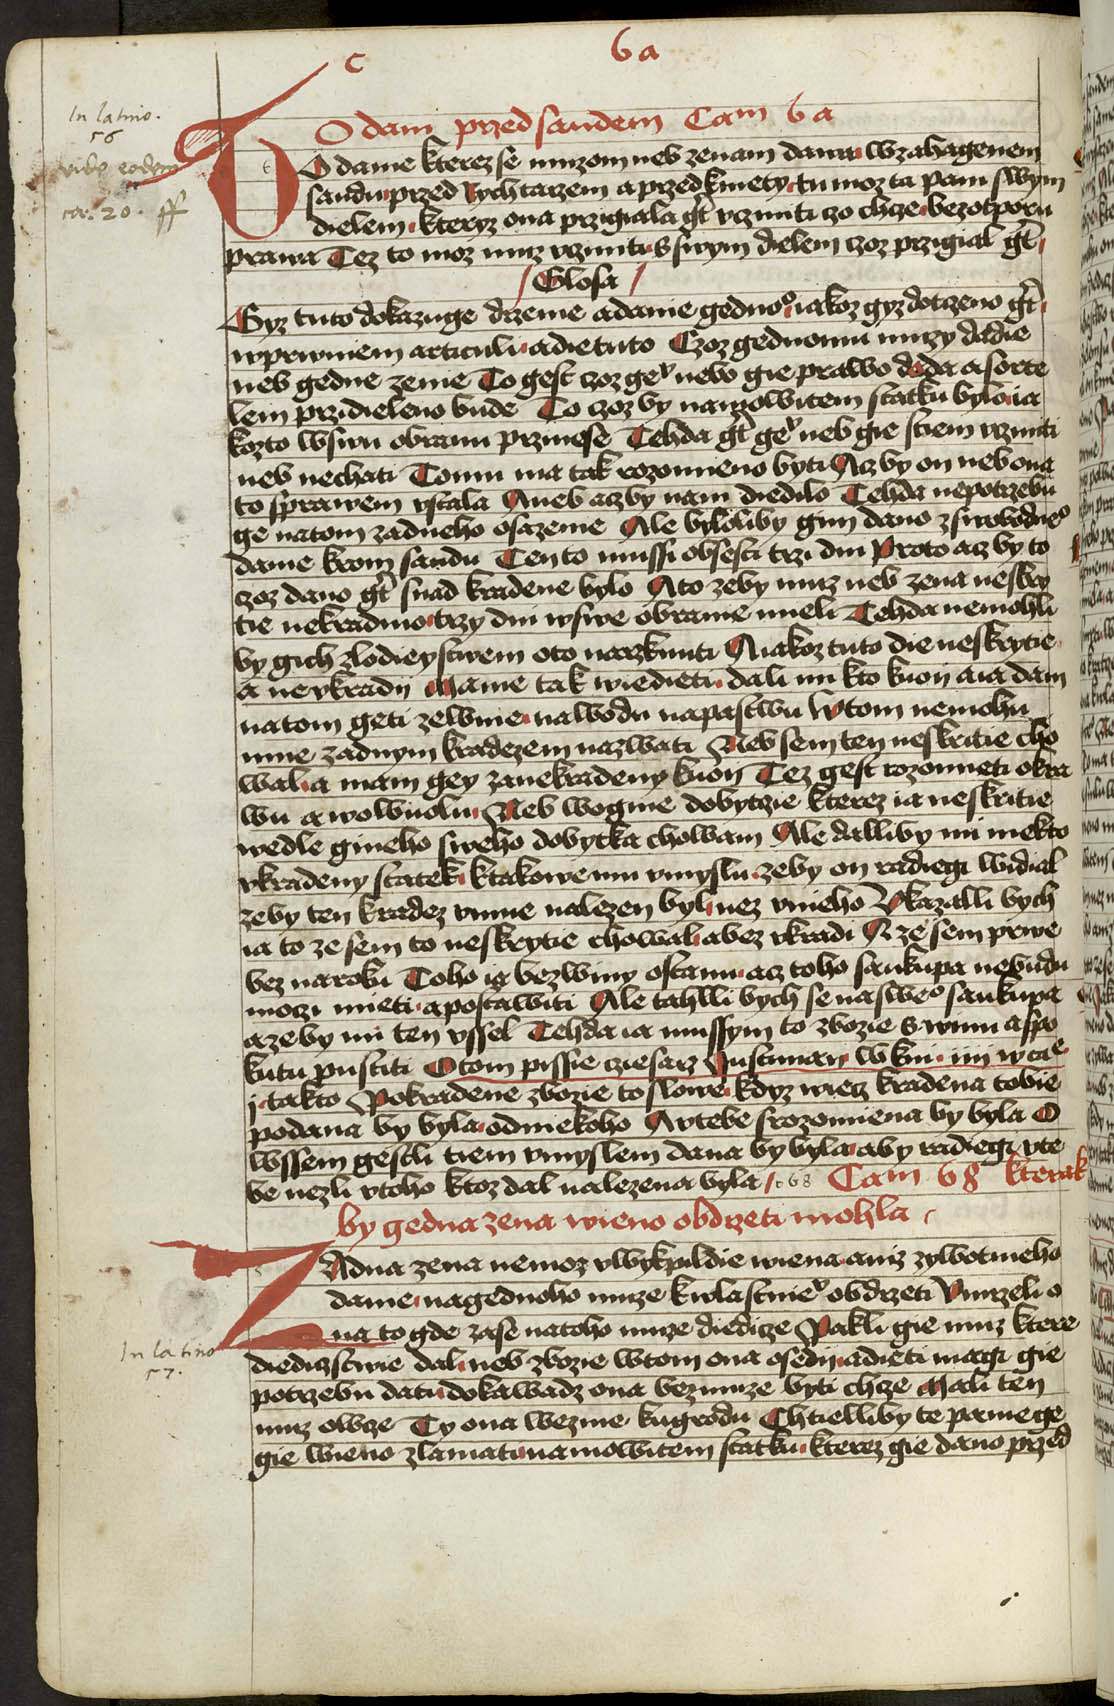 c 6a
In latino.
56
O dani przed saudem Cam 6a
vide eodem
car. 20. ff
O danie kterez se muzom neb zenam dawa wzahagenem
saudu przed Rychtarzem a przed kmety tu moz ta pani swym
dielem kteryz ona przigiala gt vcziniti czo chcze bez otporu
prawa Tez to moz muz vcziniti s swym dielem czoz przigial gt
Glosa
Gyz tuto dokazuge drzenie a danie gednoo iakoz gyz dotczeno gt
wprwniem articuli a die tuto Czoz gednomu muzy dadie
neb gedne zenie To gest czoz geo nebo gie prawo doda a sorte
lem przidieleno bude To czoz by namowitem statku bylo ia
kozto wswu obranu przinese Tehda gt geo neb gie stiem vcziniti
neb nechati Tomu ma tak rozomieno byti Acz by on neb ona
to sprawem vstala Aneb acz by nani diedilo Tehda nepotrzebu
ge natom zadneho osazenie Ale byloliby gim dano z swobodneo
danie krom saudu Tento mussi obsesti trzi dni Proto acz by to
czoz dano gt snad kradene bylo Ato zeby muz neb zena neskry
tie nekradmo trzy dni wswe obranie mieli Tehda nemohli
by gich zlodieystwem oto narzknuti A iakoz tuto die neskrytie
a nevkradij Mame tak wiedieti dali mi kto kuon a ia dam
natom geti zelwine nalwodu napastwu Wtom nemohu
mne zadnym kradezem nazwati Neb sem ten neskritie cho
wal a mam gey zanekradeny kuon Tez gest rozomieti o kra
wu a wolwuolu Neb woginie dobytcie kterez ia neskritie
wedle gineho sweho dobytka chowam Ale dalliby mi niekto
vkradeny statek ktakowemu vmyslu zeby on radiegi widial
zeby ten kradez vmne nalezen byl nez vnieho Vkazalli bych
ia to ze sem to neskrytie chowal a bez vkradi A ze sem prwe
bez naroku Toho ia bez winy ostanu acz toho saukupa nebudu
moczi mieti a postawiti Ale tahlli bych se na sweo saukupa
a zeby mi ten vssel Tehda ia mussym to zbozie s winu a s po
kutu pustiti O tom pissie cziesarz Justinian w kni iiij w cae
j takto Pokradene zbozie to slowe kdyz wiecz kradena tobie
podana by byla od niekoho A v tebe srozomiena by byla O
wssem gestli tiem vmyslem dana by byla aby radiegi v te
be nezli v toho ktoz dal nalezena byla c68 Cam 68 kterak
by gedna zena wieno obdrzeti mohla
Zadna zena nemoz vlwykpuldie wiena aniz zywotnieho
danie nagednoho muze kwlastnieo obdrzeti Vmrzeli o
na to gde zase natoho muze diedicze Pakli gie muz ktere
In latino
57.
diedicztwie dal neb zbozie wtom ona osedij a dieti magi gie
potrzebu dati dokawadz ona bez muze byti chcze Mali ten
muz owcze Ty ona wezme kugrodu Chtielliby te pak nege
gie wieno zlamati namowitem statku kterez gie dano przed